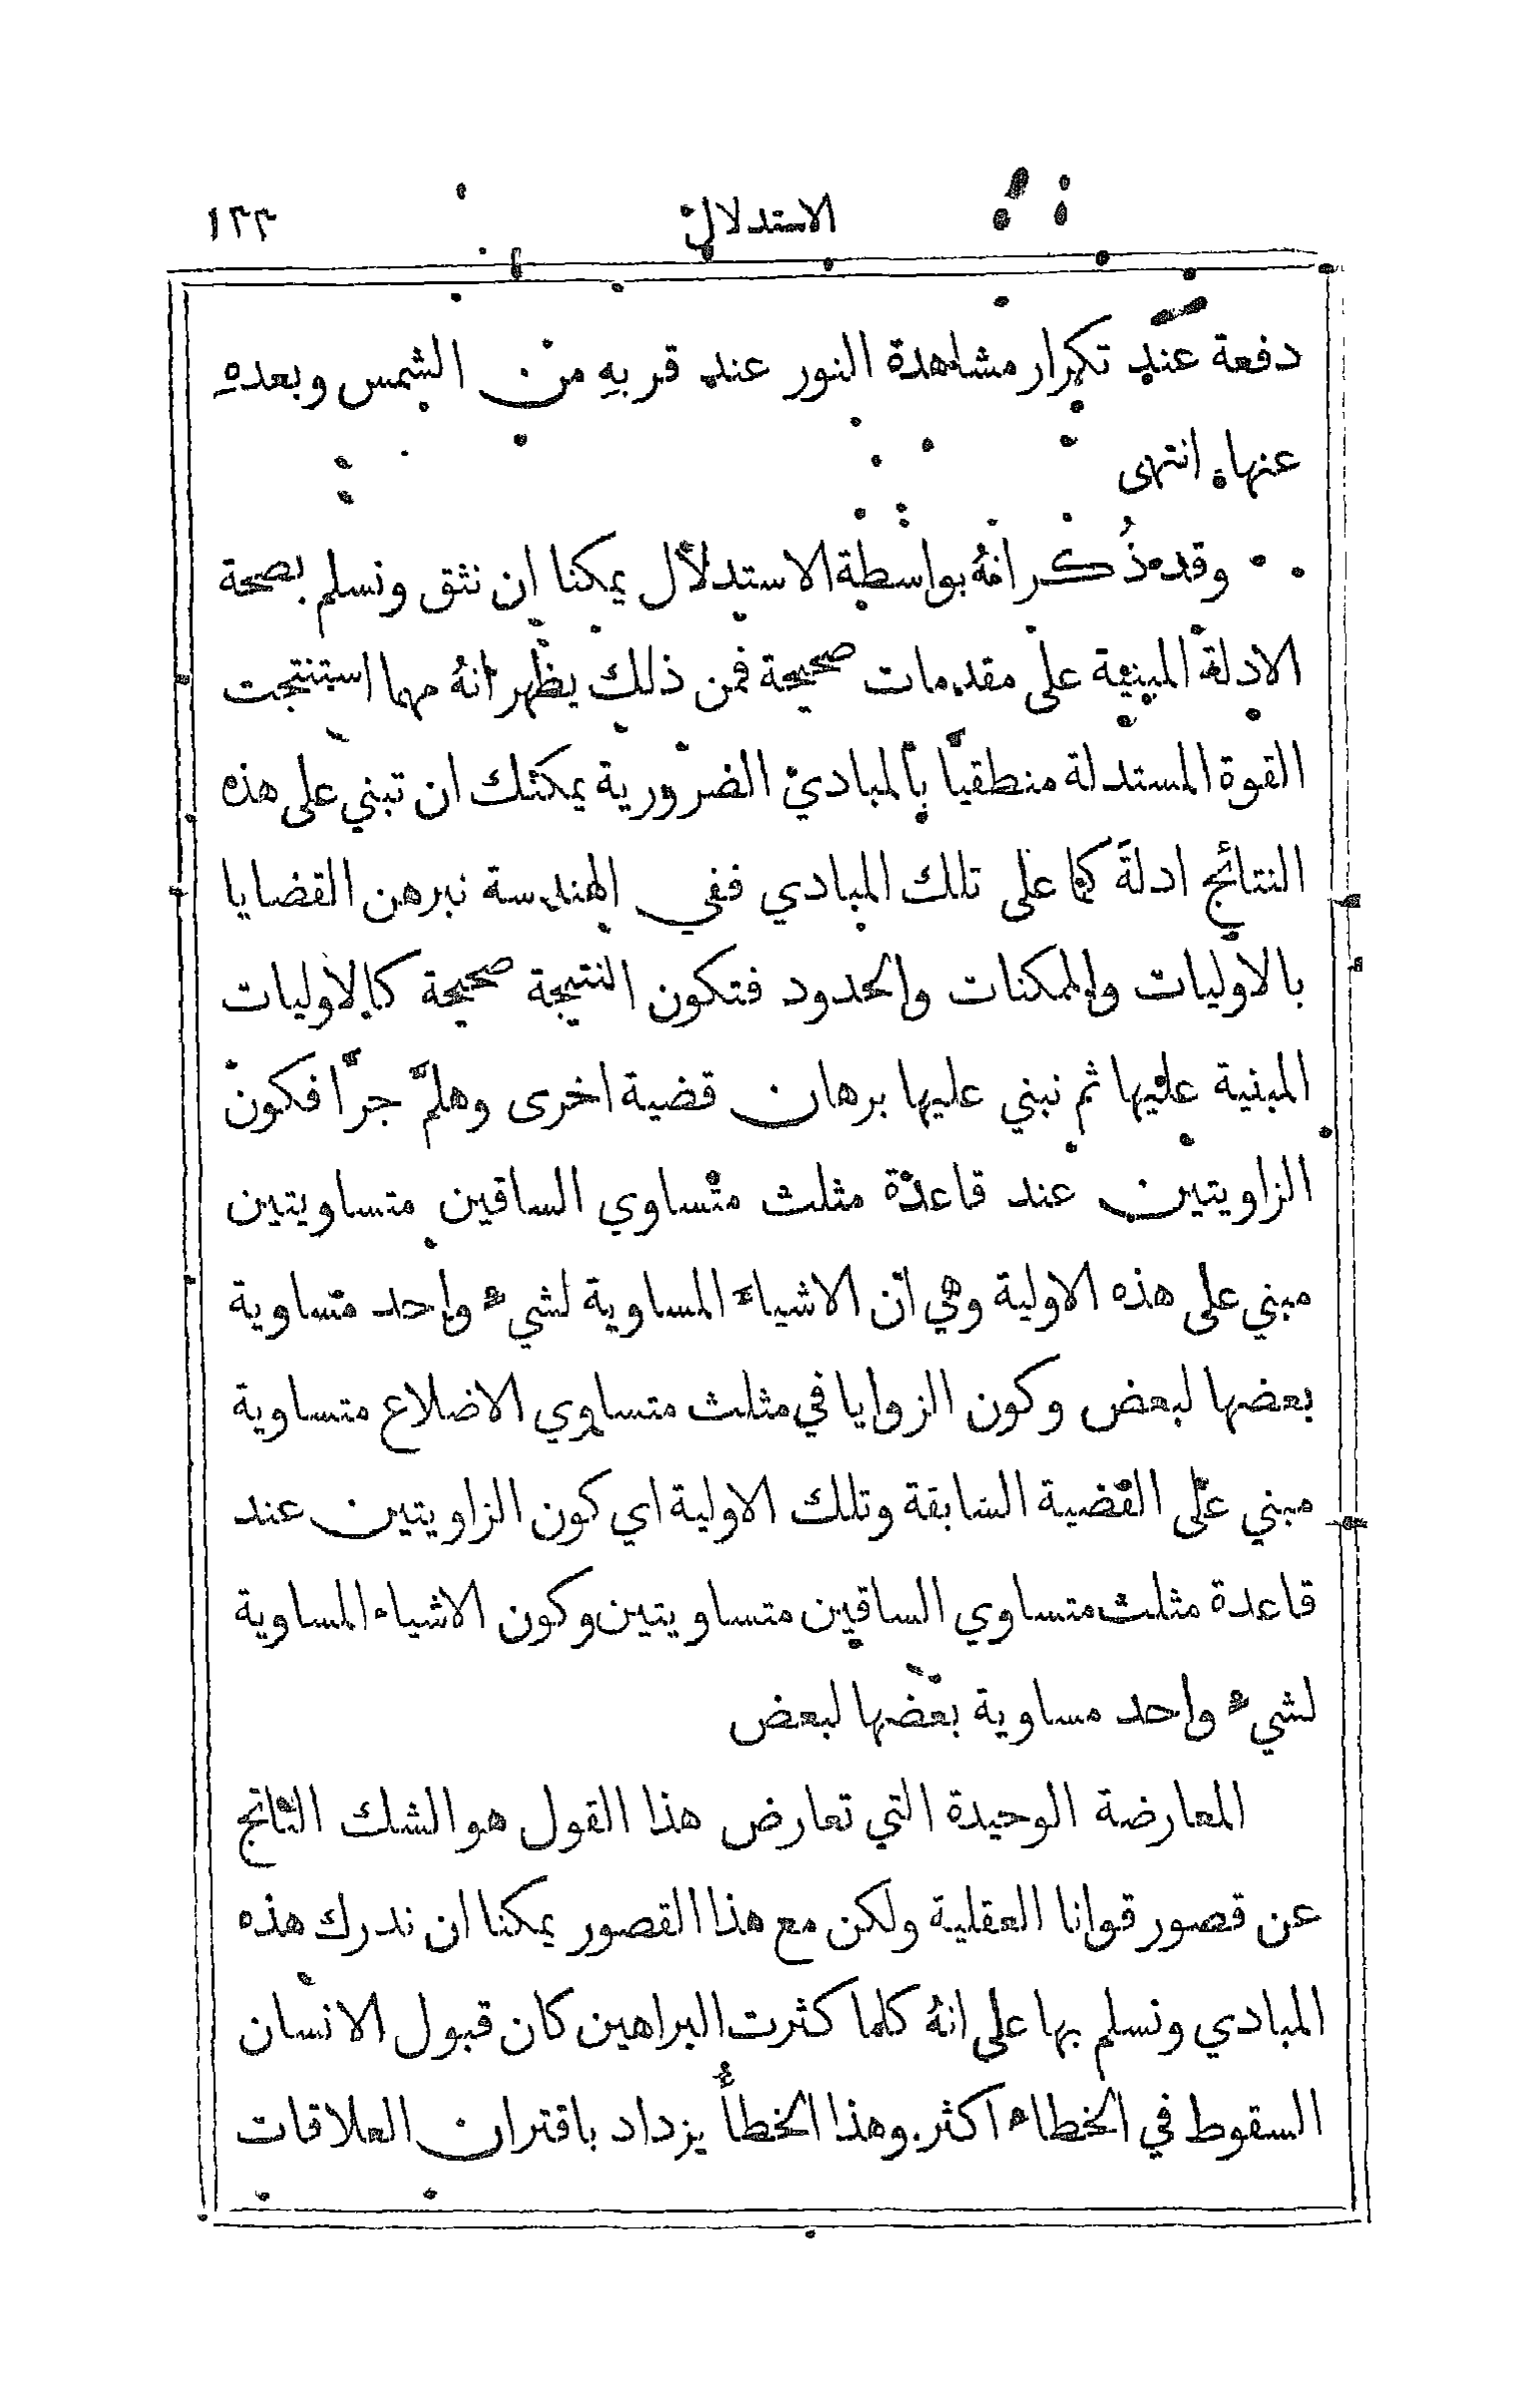 الاستدلال ١٢٣
دفعة عند تكرار مشاهدة النور عند قربهِ من الشمس وبعدهِ
عنها. انتهى
وقد ذُكر انهُ بواسطة الاستدلال يمكنا ان نثق ونسلم بصحة
الادلة المبنية على مقدمات صحيحة فمن ذلك يظهر انهُ مهما استنتجت
القوة المستدلة منطقيًّا بالمبادي الضرورية يمكنك ان تبني على هذه
النتائج ادلة كما على تلك المبادي ففي الهندسة نبرهن القضايا
بالاوليات والممكنات والحدود فتكون النتيجة صحيحة كالاوليات
المبنية عليها ثم نبني عليها برهان قضية اخرى وهلمَّ جرًّا فكون
الزاويتين عند قاعدة مثلث متساوي الساقين متساويتين
مبني على هذه الاولية وهي ان الاشياء المساوية لشيء واحد متساوية
بعضها لبعض وكون الزوايا في مثلث متساوي الاضلاع متساوية
مبني على القضية السابقة وتلك الاولية اي كون الزاويتين عند
قاعدة مثلث متساوي الساقين متساويتين وكون الاشياء المساوية
لشيء واحد مساوية بعضها لبعض
المعارضة الوحيدة التي تعارض هذا القول هو الشك الناتج
عن قصور قوانا العقلية ولكن مع هذا القصور يمكنا ان ندرك هذه
المبادي ونسلم بها على انهُ كلما كثرت البراهين كان قبول الانسان
السقوط في الخطاء اكثر. وهذا الخطأ يزداد باقتران العلاقات